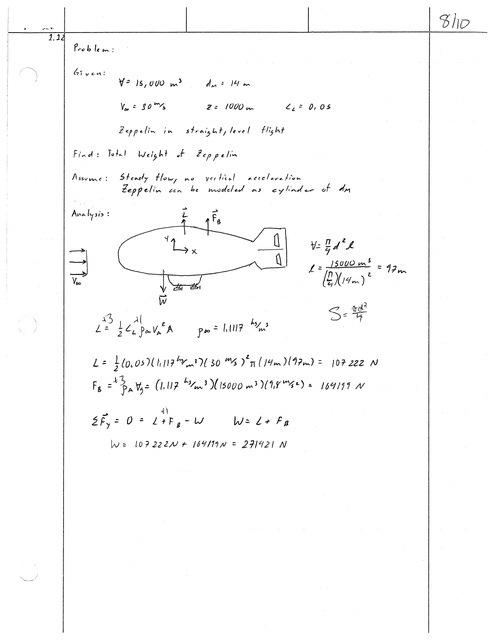 8/10
Problem:
Given:
∀ = 15,000 m³ dₘ = 14 m
V∞ = 30 m/s z = 1000 m C_L = 0.05
Zeppelin in straight, level flight
Find: Total Weight of Zeppelin
Assume: Steady flow, no vertical acceleration
Zeppelin can be modeled as cylinder of dₘ
Analysis:
L F_B
y
x
V∞
W
∀ = π/4 d² l
l = 15000 m³ / (π/4)(14m)² = 97m
S = πd²/4
+3 +1
L = 1/2 C_L ρ∞ V∞² A ρ∞ = 1.1117 kg/m³
L = 1/2 (0.05)(1.117 kg/m³)(30 m/s)² π(14m)(97m) = 107222 N
+3
F_B = ρ∞ ∀ g = (1.117 kg/m³)(15000 m³)(9.8 m/s²) = 164199 N
+1
ΣF_y = 0 = L + F_B - W W = L + F_B
W = 107222 N + 164199 N = 271421 N